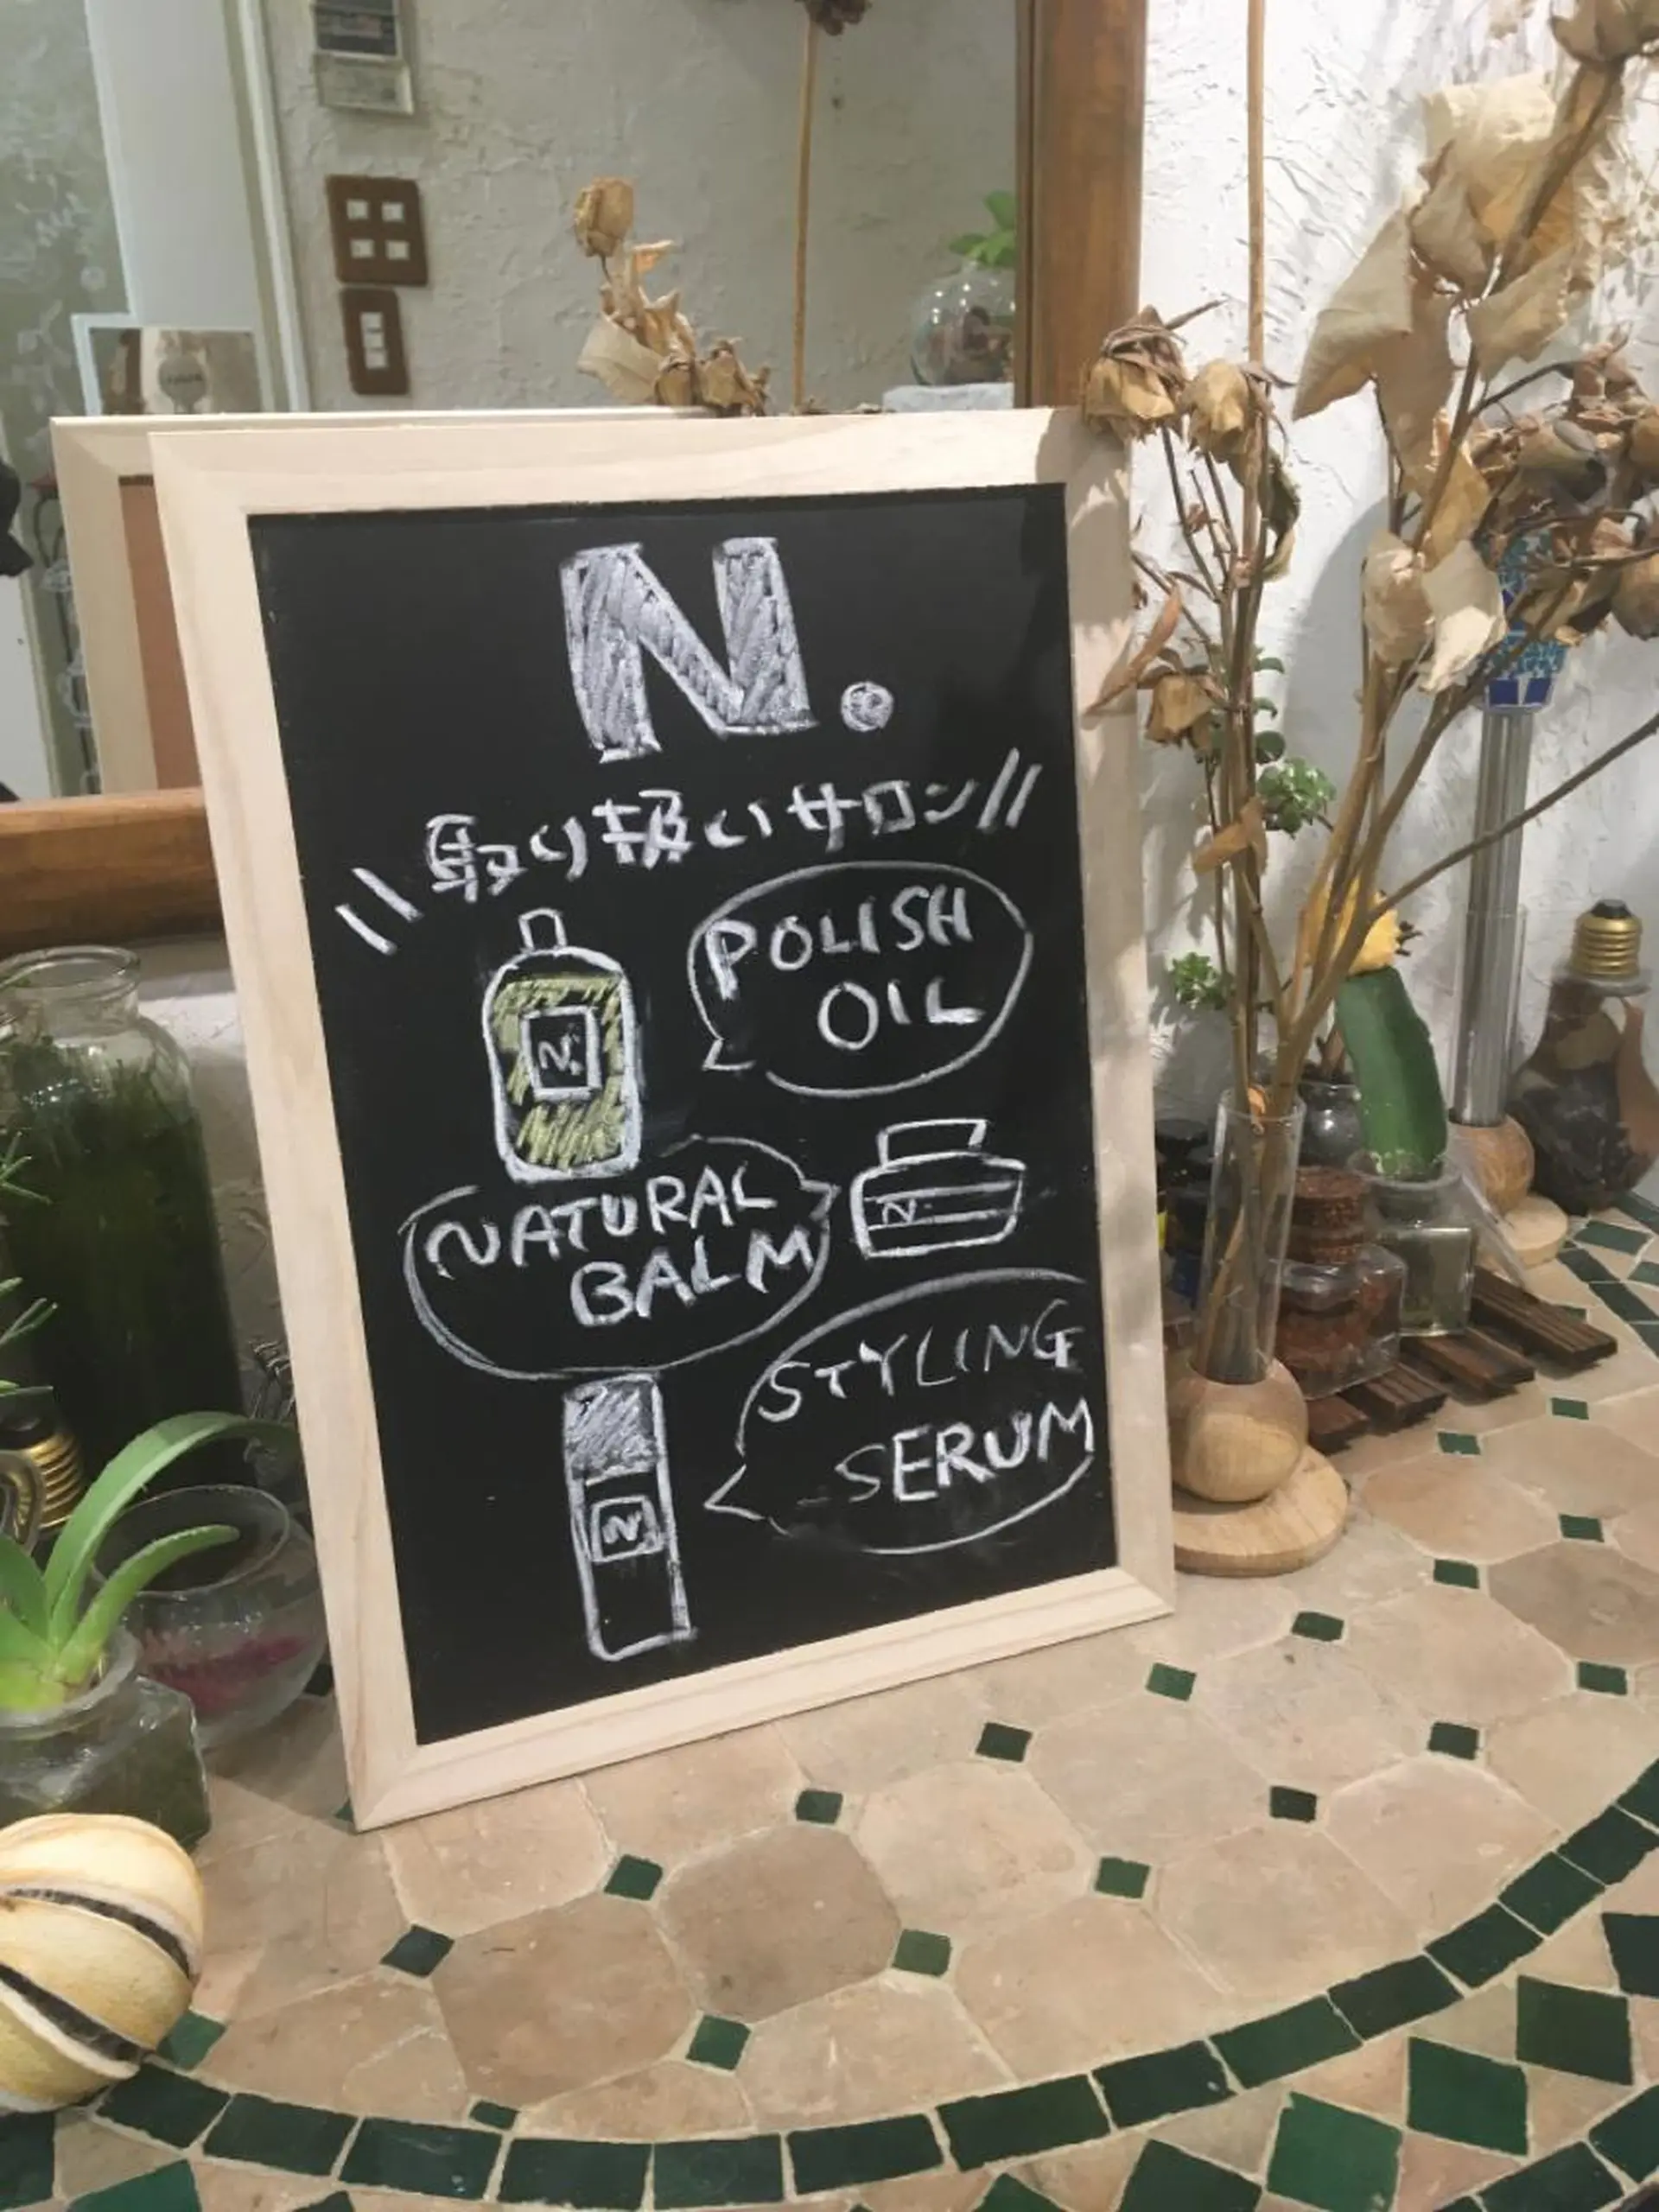 N.
\\ 取り扱いサロン //
POLISH
OIL
N.
NATURAL
BALM
N.
STYLING
SERUM
N.